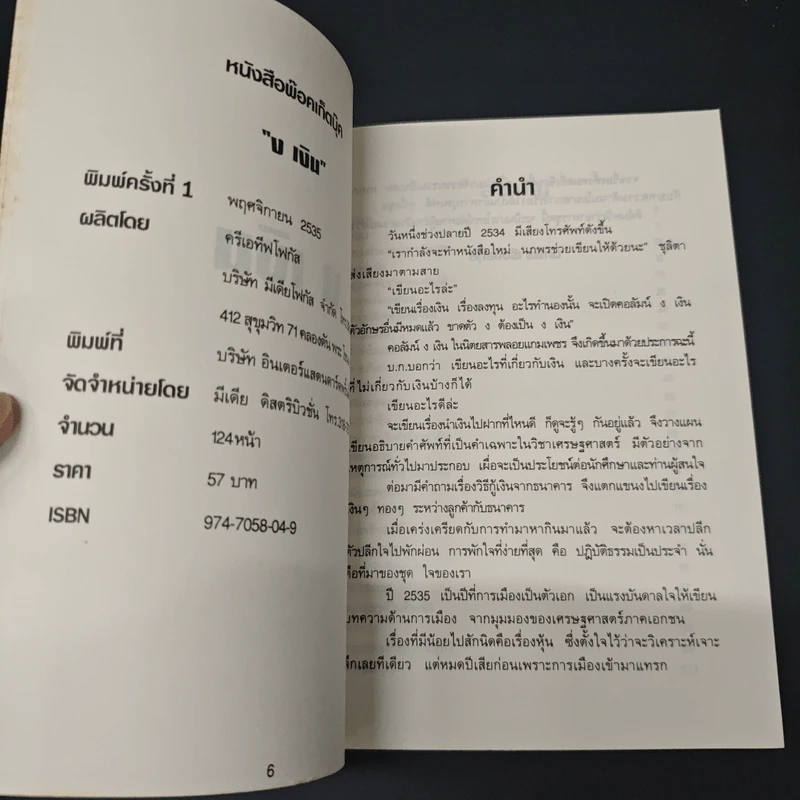 หนังสือพ๊อคเก็ตบุ๊ค
"ง เงิน"
พิมพ์ครั้งที่ 1 พฤศจิกายน 2535
ผลิตโดย ครีเอทีฟโฟกัส
บริษัท มีเดียโฟกัส จำกัด
412 สุขุมวิท 71 คลองตัน
พิมพ์ที่ บริษัท อินเตอร์แสตนดาร์ด
จัดจำหน่ายโดย มีเดีย ดิสตริบิวชั่น โทร.
จำนวน 124หน้า
ราคา 57 บาท
ISBN 974-7058-04-9
6
คำนำ
วันหนึ่งช่วงปลายปี 2534 มีเสียงโทรศัพท์ดังขึ้น
"เรากำลังจะทำหนังสือใหม่ นภพรช่วยเขียนให้ด้วยนะ" ชุลิตา
ส่งเสียงมาตามสาย
"เขียนอะไรล่ะ"
"เขียนเรื่องเงิน เรื่องลงทุน อะไรทำนองนั้น จะเปิดคอลัมน์ ง เงิน
ตัวอักษรอื่นมีหมดแล้ว ขาดตัว ง ต้องเป็น ง เงิน"
คอลัมน์ ง เงิน ในนิตยสารพลอยแกมเพชร จึงเกิดขึ้นมาด้วยประการฉะนี้
บ.ก.บอกว่า เขียนอะไรที่เกี่ยวกับเงิน และบางครั้งจะเขียนอะไร
ที่ไม่เกี่ยวกับเงินบ้างก็ได้
เขียนอะไรดีล่ะ
จะเขียนเรื่องนำเงินไปฝากที่ไหนดี ก็ดูจะรู้ๆ กันอยู่แล้ว จึงวางแผน
เขียนอธิบายคำศัพท์ที่เป็นคำเฉพาะในวิชาเศรษฐศาสตร์ มีตัวอย่างจาก
เหตุการณ์ทั่วไปมาประกอบ เผื่อจะเป็นประโยชน์ต่อนักศึกษาและท่านผู้สนใจ
ต่อมามีคำถามเรื่องวิธีกู้เงินจากธนาคาร จึงแตกแขนงไปเขียนเรื่อง
เงินๆ ทองๆ ระหว่างลูกค้ากับธนาคาร
เมื่อเคร่งเครียดกับการทำมาหากินมาแล้ว จะต้องหาเวลาปลีก
ตัวปลีกใจไปพักผ่อน การพักใจที่ง่ายที่สุด คือ ปฏิบัติธรรมเป็นประจำ นั่น
คือที่มาของชุด ใจของเรา
ปี 2535 เป็นปีที่การเมืองเป็นตัวเอก เป็นแรงบันดาลใจให้เขียน
บทความด้านการเมือง จากมุมมองของเศรษฐศาสตร์ภาคเอกชน
เรื่องที่มีน้อยไปสักนิดคือเรื่องหุ้น ซึ่งตั้งใจไว้ว่าจะวิเคราะห์เจาะ
ลึกเลยทีเดียว แต่หมดปีเสียก่อนเพราะการเมืองเข้ามาแทรก